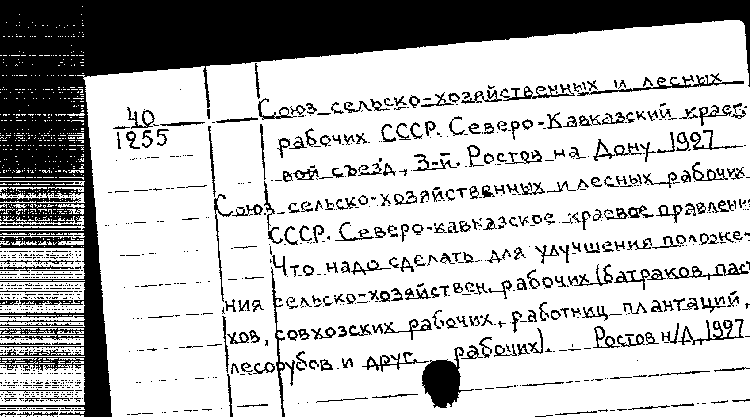 40
1255
Союз сельско-хозяйственных и лесных
рабочих СССР. Северо-Кавказский краев
вой съезд, 3-й. Ростов на Дону. 1927
Союз сельско-хозяйственных и лесных рабочих
СССР. Северо-кавказское краевое правлени
Что надо сделать для улучшения положе-
ния сельско-хозяйствен. рабочих (батраков, пас
хов, совхозских рабочих, работниц плантаций,
лесорубов и друг. рабочих). Ростов н/Д, 1927